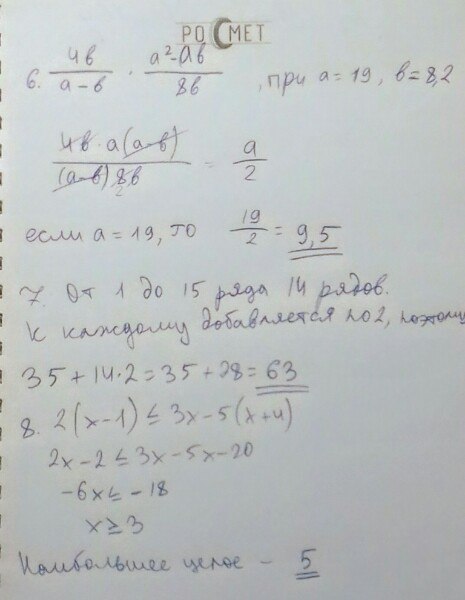 РОСМЕТ
6. 4в/(а-в) · (а²-ав)/8в , при а=19, в=8,2
4в·а(а-в)/(а-в)8в = а/2
2
если а=19, то 19/2 = 9,5
7. От 1 до 15 ряда 14 рядов.
К каждому добавляется по 2, поэтому
35+14·2=35+28=63
8. 2(х-1) ≤ 3х-5(х+4)
2х-2 ≤ 3х-5х-20
-6х ≤ -18
х ≥ 3
Наибольшее целое - 5